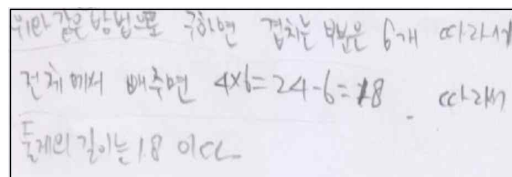 위와 같은 방법으로 구하면 겹치는 부분은 6개 따라서
전체에서 빼주면 4×6=24-6=18. 따라서
둘레의 길이는 18 이다.